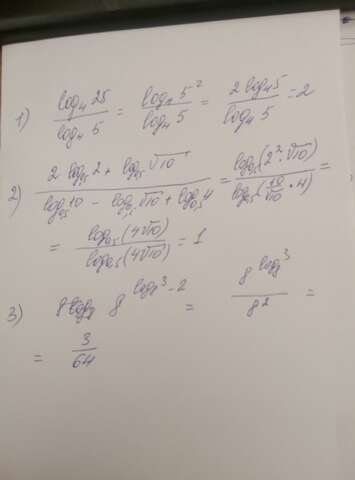 1) log₄25 / log₄5 = log₄5² / log₄5 = 2log₄5 / log₄5 = 2
2) (2 log₀,₅2 + log₀,₅√10) / (log₀,₅10 - log₀,₅√10 + log₀,₅4) = log₀,₅(2²·√10) / log₀,₅(10/√10 · 4) =
= log₀,₅(4√10) / log₀,₅(4√10) = 1
3) 8^(log₈3-2) = 8^(log₈3) / 8² =
= 3/64